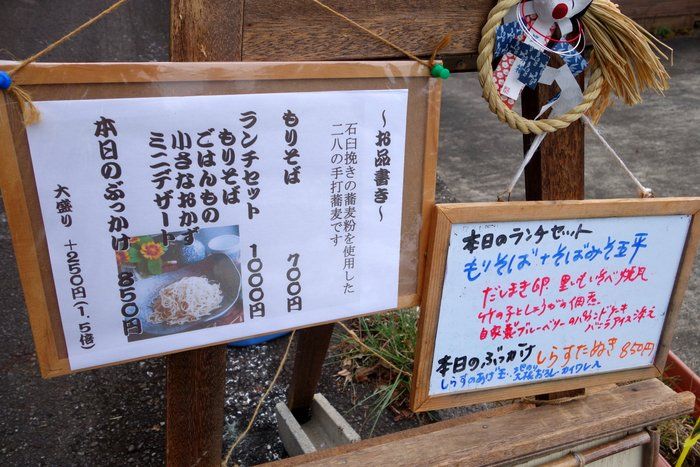 ～お品書き～
石臼挽きの蕎麦粉を使用した
二八の手打蕎麦です
もりそば 700円
ランチセット 1000円
もりそば
ごはんもの
小さなおかず
ミニデザート
本日のぶっかけ 850円
大盛り +250円(1.5倍)
本日のランチセット
もりそば + そばみそ玉子
だしまき卵、里いもいそべ焼
竹の子としょうがの佃煮
自家製ブルーベリーのパウンドケーキ
バニラアイス添え
本日のぶっかけ しらすたぬき 850円
しらすのあげ玉
大根おろし カイワレ